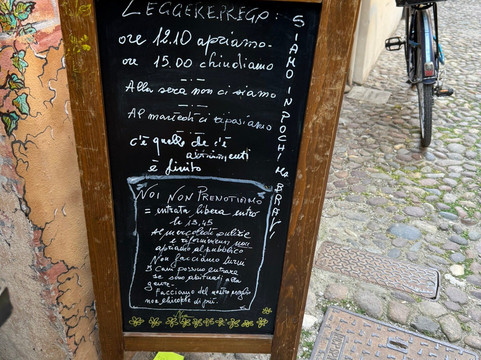 LEGGERE PREGO:
ore 12.10 apriamo-
ore 15.00 chiudiamo
Alla sera non ci siamo
Al martedì ci riposiamo
c'è quello che c'è
altrimenti
è finito
SIAMO IN POCHI MA BRAVI
NOI NON PRENOTIAMO
= entrata libera entro
le 13,45
Al mercoledì pulizie
e rifornimenti non
apriamo al pubblico
Non facciamo turni
I cani possono entrare
se sono abituati alla
gente.
Facciamo del nostro meglio
non chiedete di più.